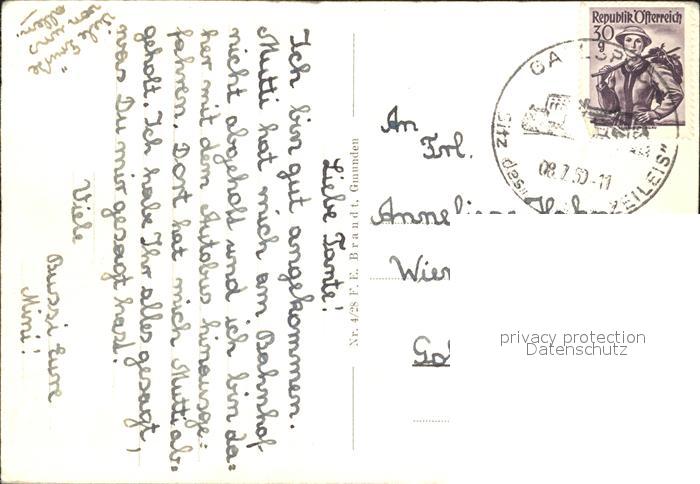 Liebe Tante!
Ich bin gut angekommen.
Mutti hat mich am Bahnhof
nicht abgeholt und ich bin da=
her mit dem Autobus hinausge=
fahren. Dort hat mich Mutti ab=
geholt. Ich habe Ihr alles gesagt,
was Du mir gesagt hast.
Viele
Bussi Eure
Mini!
Viele Grüße
von uns
allen!
Nr. 4/28 F. E. Brandt, Gmunden
Republik Österreich
30
g
08.7.60-11
An
Frl.
Anneliese
Wien
privacy protection
Datenschutz